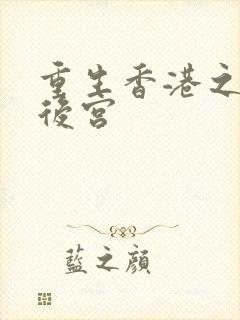 重生香港之
後宮
藍之顔